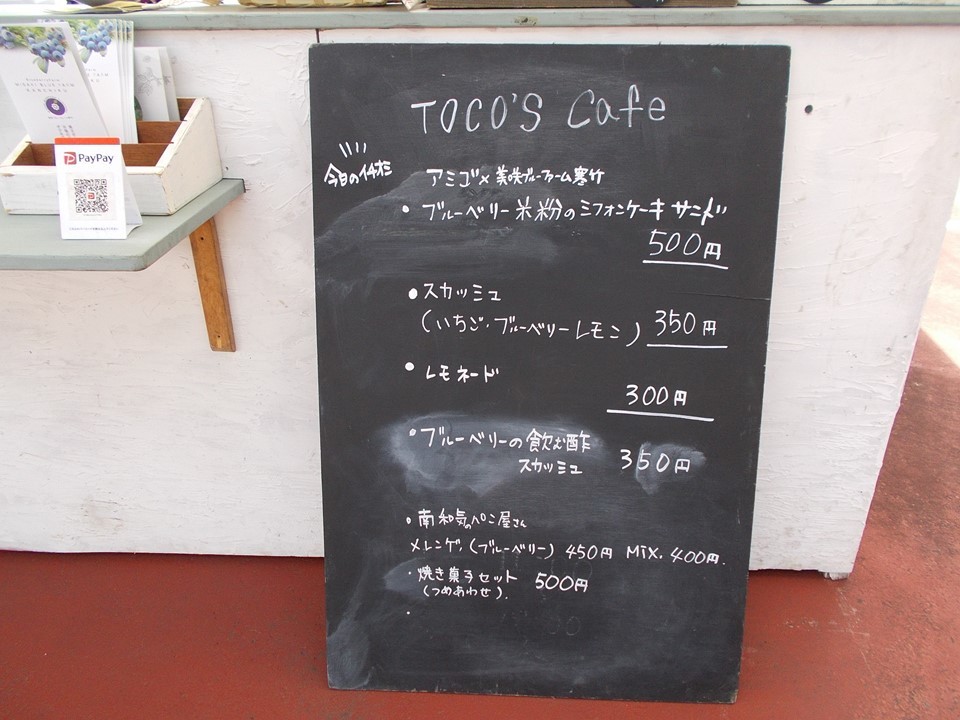 TOCO'S Cafe
今日のイチオシ
アミゴ×美咲ブルーファーム寒竹
・ブルーベリー米粉のシフォンケーキサンド
500円
・スカッシュ
(いちご・ブルーベリーレモン) 350円
・レモネード
300円
・ブルーベリーの飲む酢
スカッシュ 350円
・南和気のパン屋さん
メレンゲ(ブルーベリー) 450円 Mix. 400円.
・焼き菓子セット 500円
(つめあわせ).
・
PayPay